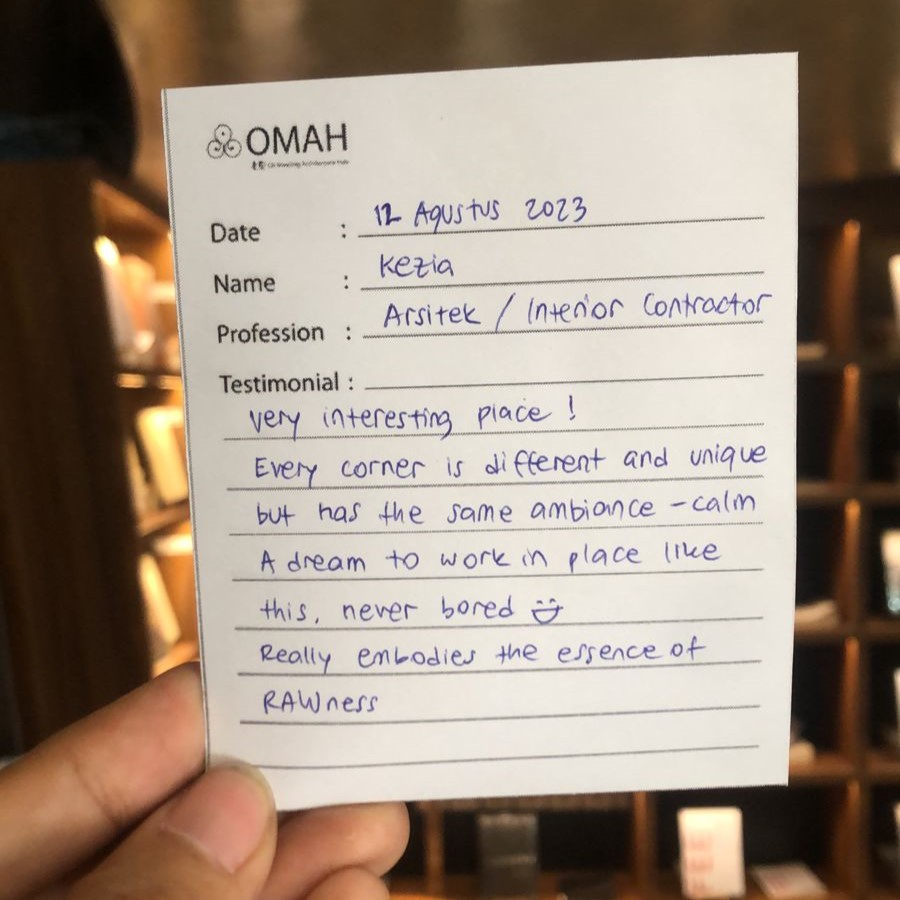 OMAH
Date : 12 Agustus 2023
Name : Kezia
Profession : Arsitek / Interior Contractor
Testimonial :
very interesting place !
Every corner is different and unique
but has the same ambiance - calm
A dream to work in place like
this, never bored
Really embodies the essence of
RAWness